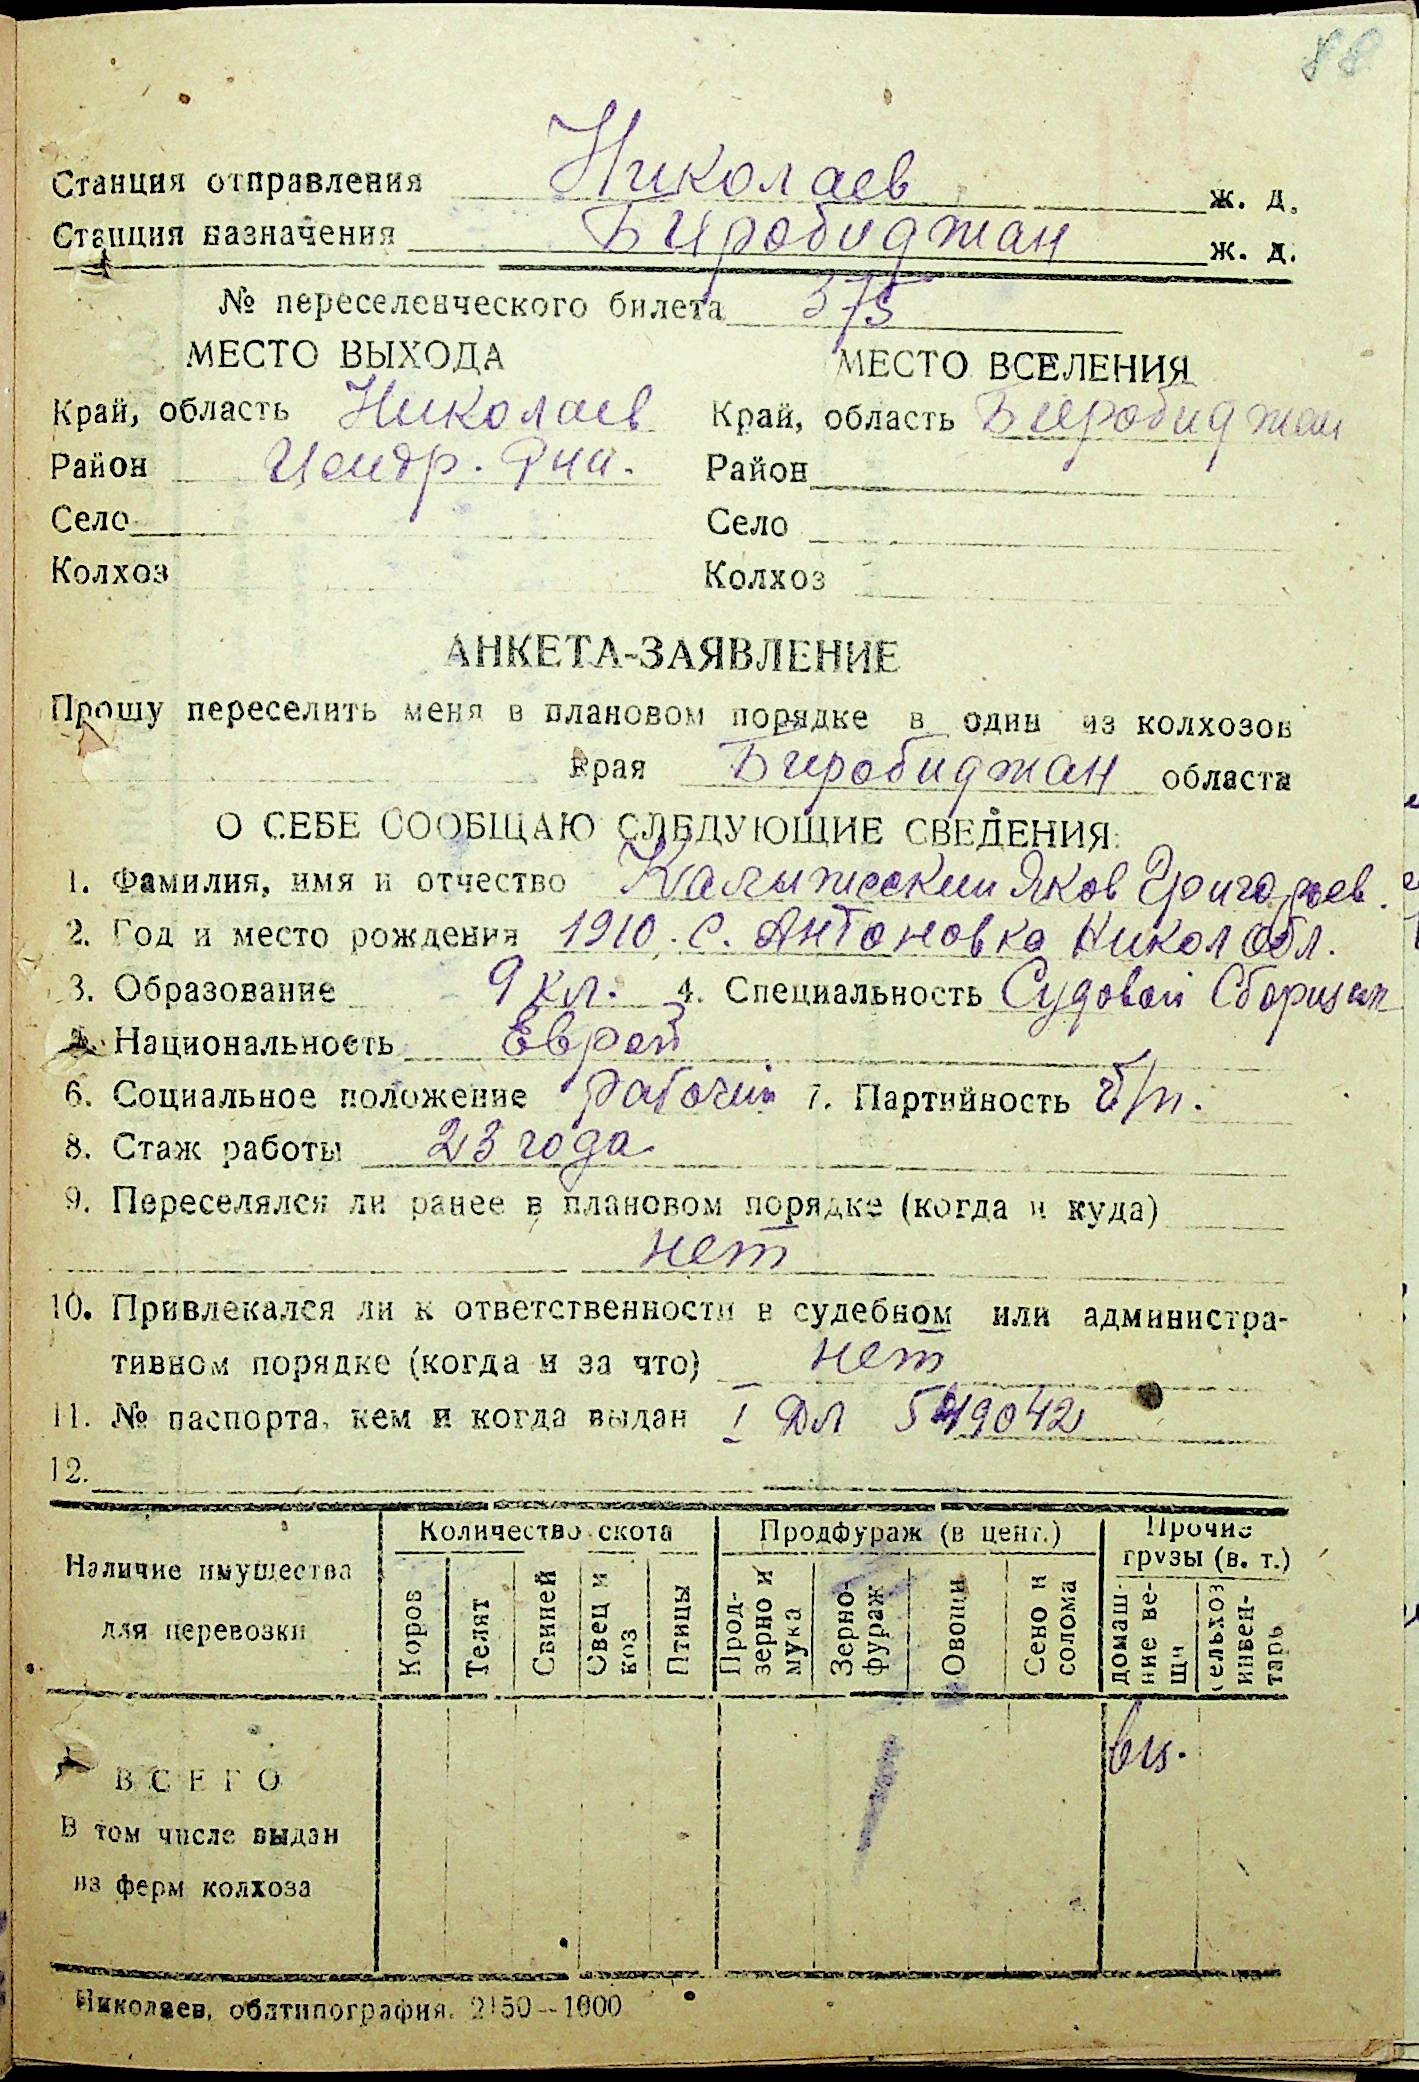 88
Станция отправления Николаев ж. д.
Станция назначения Биробиджан ж. д.
№ переселенческого билета 375
МЕСТО ВЫХОДА МЕСТО ВСЕЛЕНИЯ
Край, область Николаев Край, область Биробиджан
Район Центр. Район
Село Село
Колхоз Колхоз
АНКЕТА-ЗАЯВЛЕНИЕ
Прошу переселить меня в плановом порядке в один из колхозов
края Биробиджан области
О СЕБЕ СООБЩАЮ СЛЕДУЮЩИЕ СВЕДЕНИЯ:
1. Фамилия, имя и отчество Яков Григорьев.
2. Год и место рождения 1910. с. Антоновка Никол Обл.
3. Образование 9 кл. 4. Специальность Судовой Сборщик
Национальность Еврей
6. Социальное положение рабочий 7. Партийность б/п.
8. Стаж работы 23 года
9. Переселялся ли ранее в плановом порядке (когда и куда)
нет
10. Привлекался ли к ответственности в судебном или администра-
тивном порядке (когда и за что) нет
11. № паспорта, кем и когда выдан I ДЛ 549042
12.
Наличие имущества для перевозки Количество скота Продфураж (в цент.) Прочие грузы (в. т.)
Коров Телят Свиней Овец и коз Птицы Прод-зерно и мука Зерно-фураж Овощи Сено и солома домаш-ние ве-щи сельхоз инвен-тарь
ВСЕГО
В том числе выдан
из ферм колхоза
Николаев, облтипография. 2150—1000